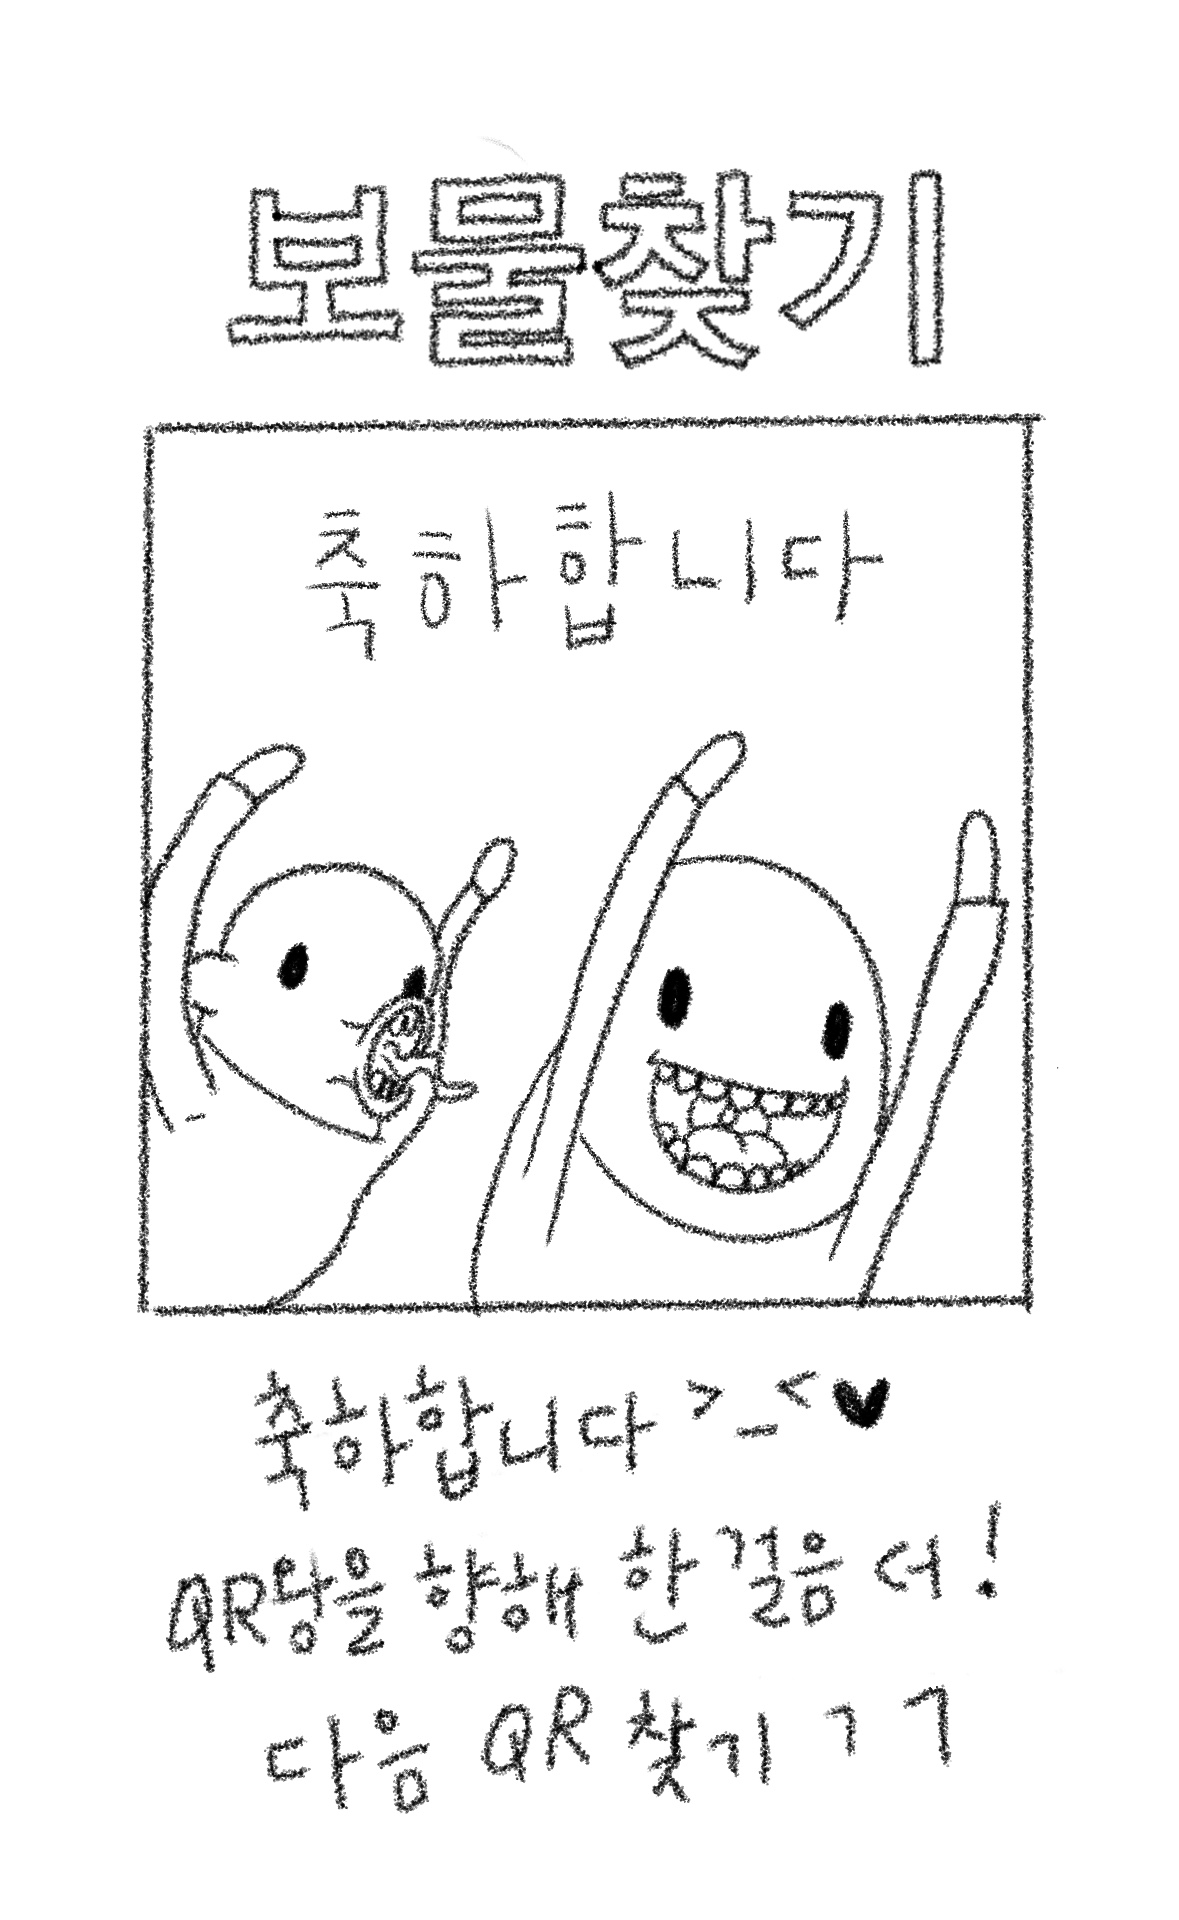 보물찾기
축하합니다
축하합니다 >_<♥
QR당을 향해 한 걸음 더!
다음 QR 찾기 ㄱㄱ